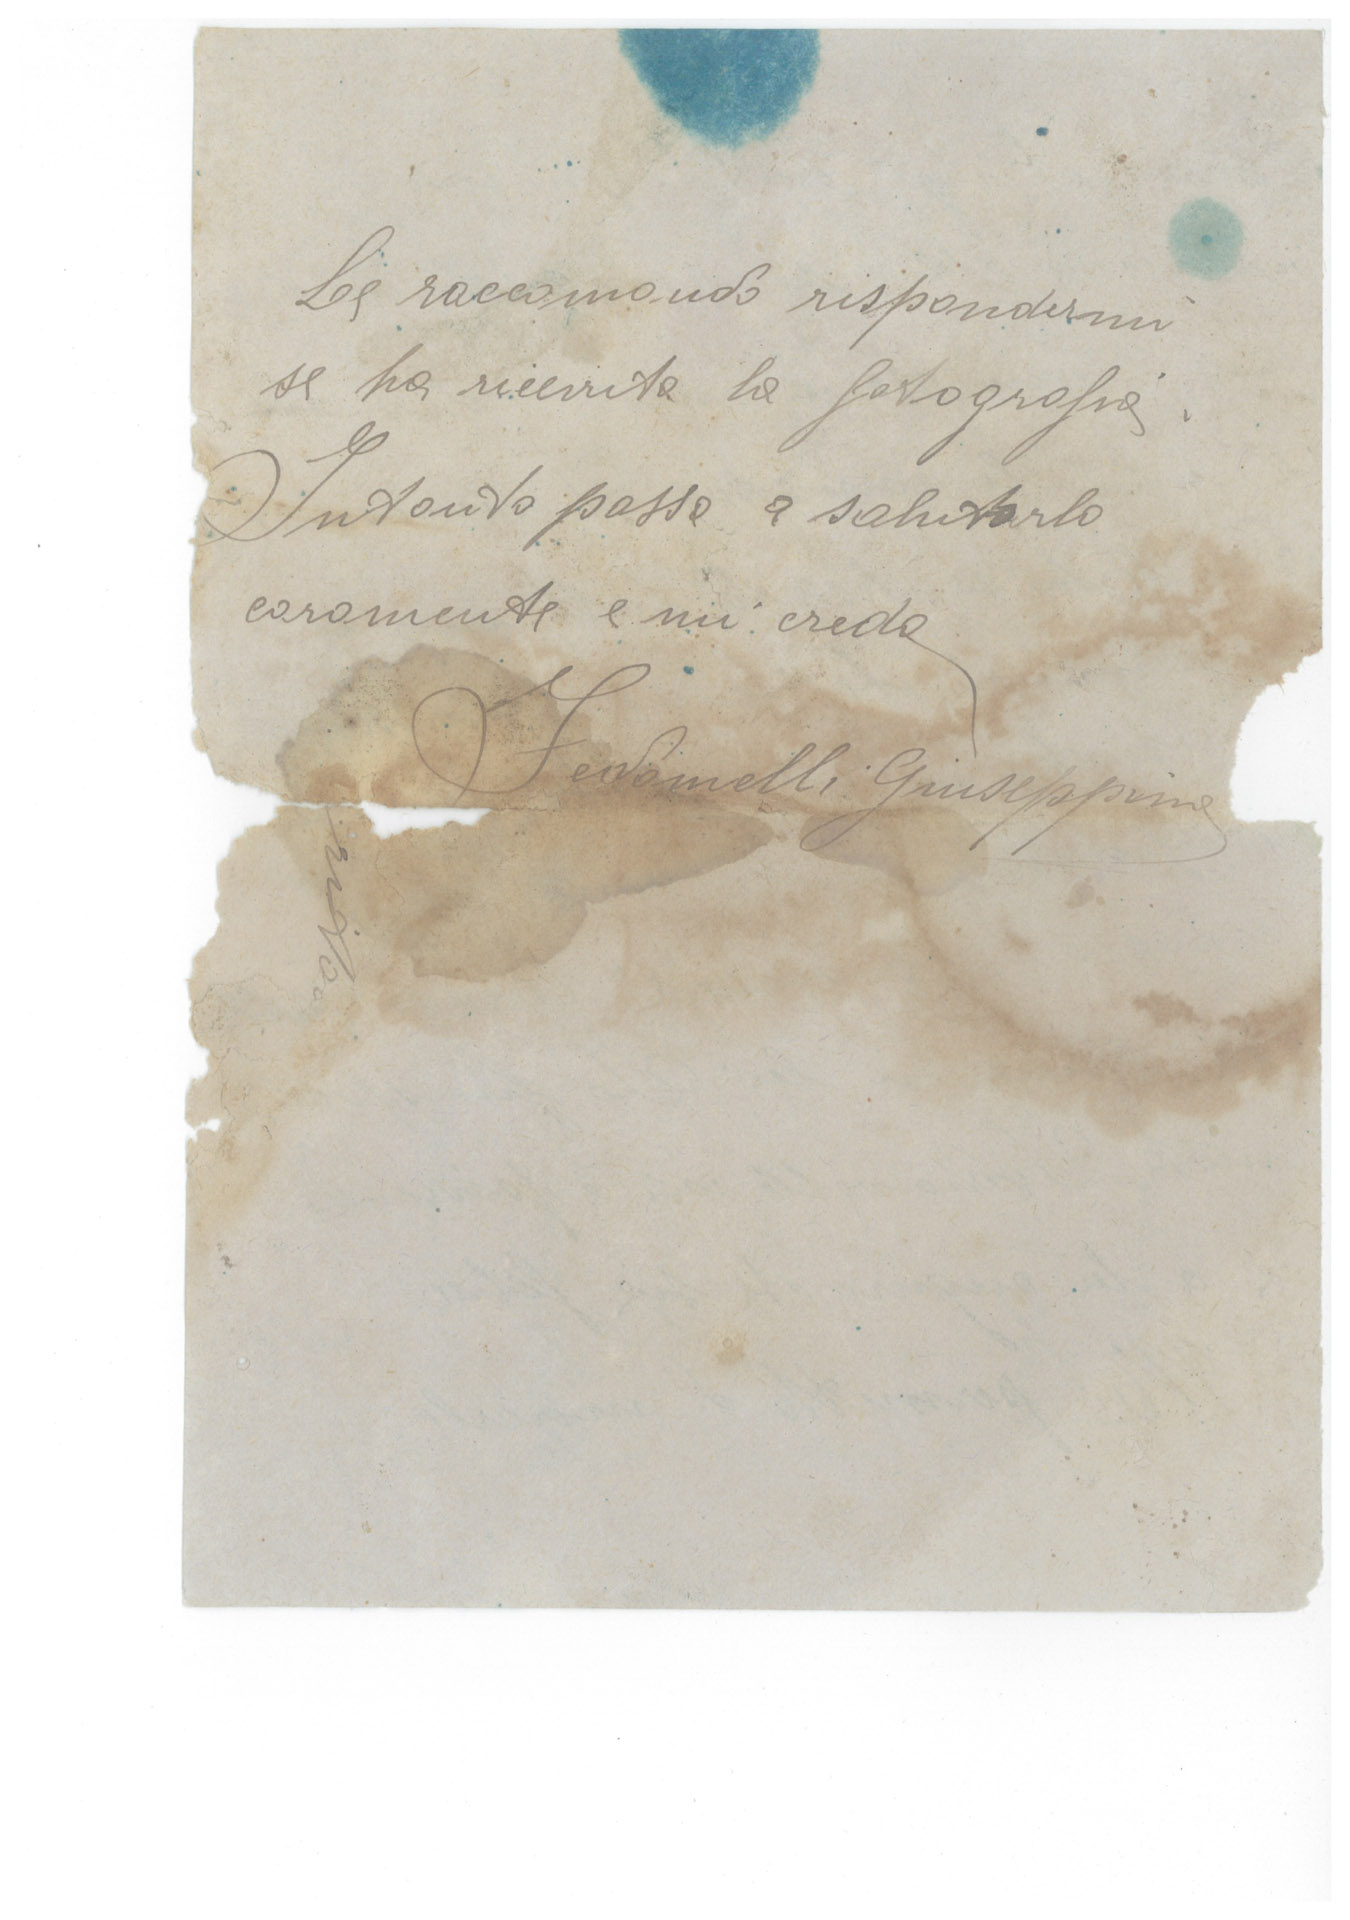 Le raccomando rispondermi
se ha ricevuta la fotografia.
Intanto passo a salutarlo
caramente e mi creda
Fedomelli Giuseppina